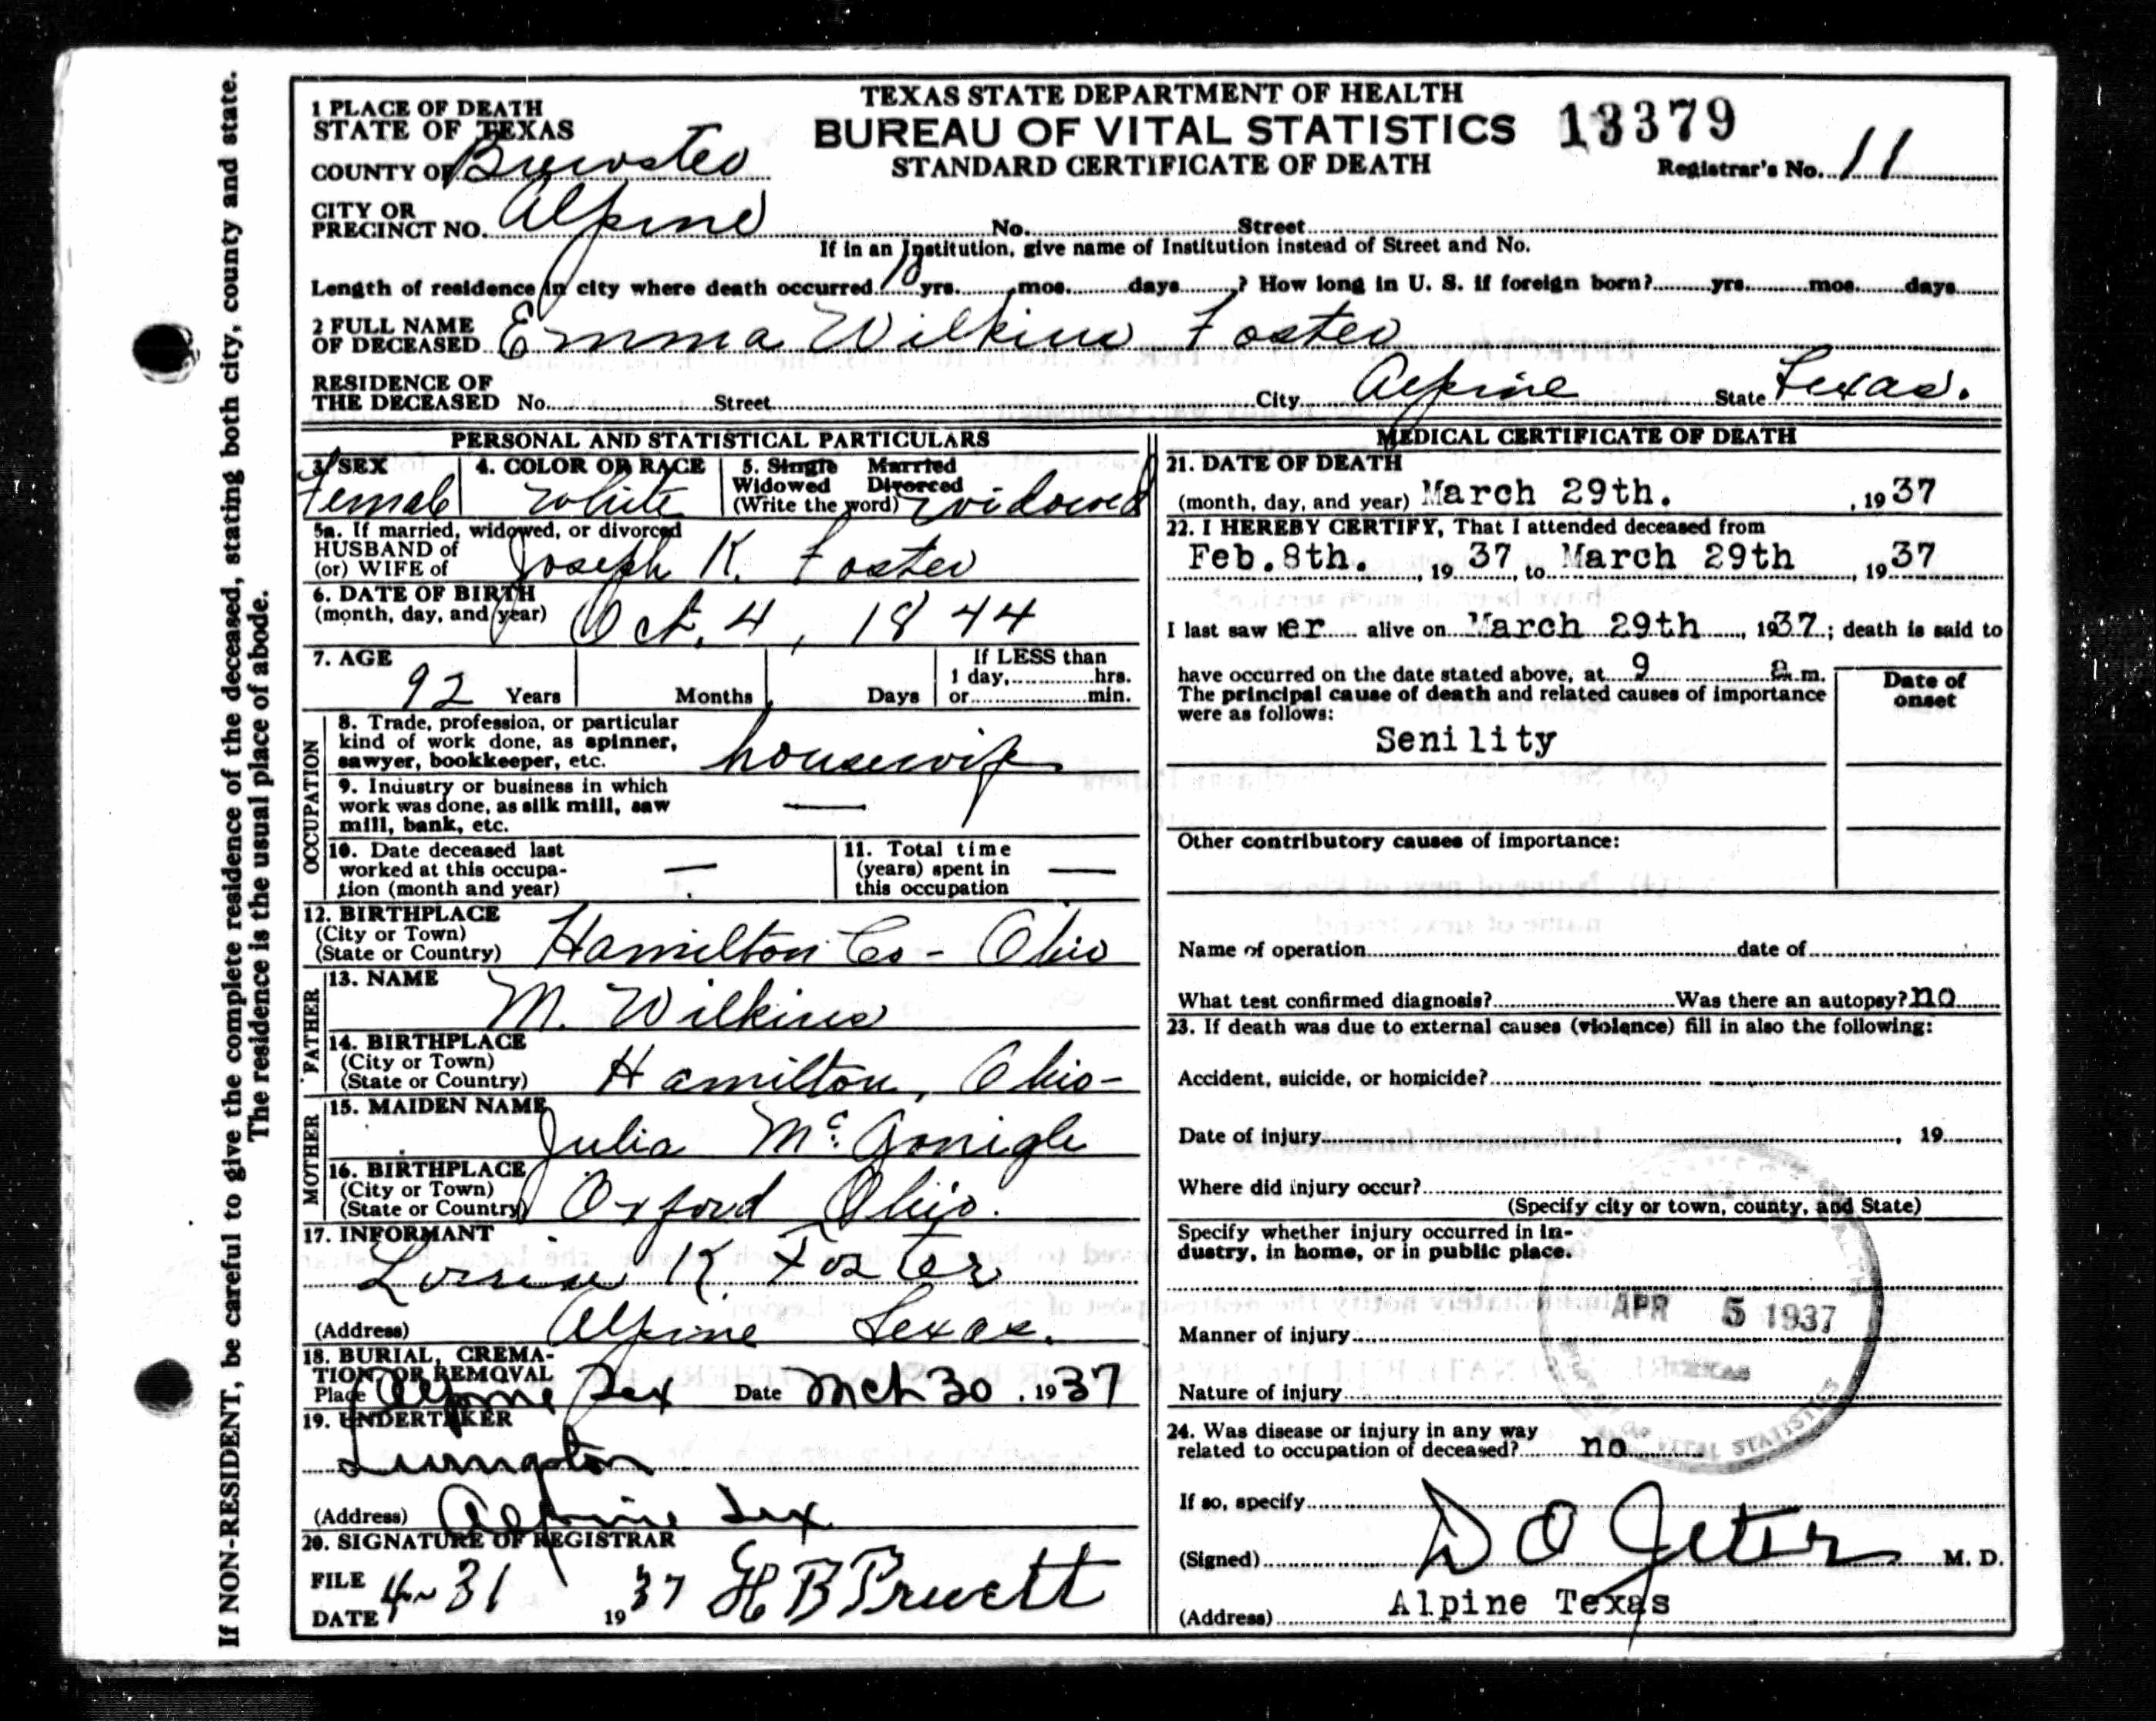 If NON-RESIDENT, be careful to give the complete residence of the deceased, stating both city, county and state.
The residence is the usual place of abode.
TEXAS STATE DEPARTMENT OF HEALTH
BUREAU OF VITAL STATISTICS 13379
STANDARD CERTIFICATE OF DEATH
Registrar's No. 11
1 PLACE OF DEATH
STATE OF TEXAS
COUNTY OF Brewster
CITY OR
PRECINCT NO. Alpine No. Street
If in an Institution, give name of Institution instead of Street and No.
Length of residence in city where death occurred yrs. mos. days ? How long in U. S. if foreign born? yrs. mos. days
2 FULL NAME
OF DECEASED Emma Wilkins Foster
RESIDENCE OF
THE DECEASED No. Street City Alpine State Texas.
PERSONAL AND STATISTICAL PARTICULARS
3 SEX
Female
4. COLOR OR RACE
White
5. Single Married
Widowed Divorced
(Write the word) widowed
5a. If married, widowed, or divorced
HUSBAND of
(or) WIFE of Joseph K. Foster
6. DATE OF BIRTH
(month, day, and year) Oct. 4, 1844
7. AGE
92 Years Months Days
If LESS than
1 day, hrs.
or min.
OCCUPATION
8. Trade, profession, or particular
kind of work done, as spinner,
sawyer, bookkeeper, etc. housewife
9. Industry or business in which
work was done, as silk mill, saw
mill, bank, etc. —
10. Date deceased last
worked at this occupa-
tion (month and year) —
11. Total time
(years) spent in
this occupation —
12. BIRTHPLACE
(City or Town)
(State or Country) Hamilton Co - Ohio
FATHER
13. NAME
M. Wilkins
14. BIRTHPLACE
(City or Town)
(State or Country) Hamilton, Ohio-
MOTHER
15. MAIDEN NAME
Julia McGonigle
16. BIRTHPLACE
(City or Town)
(State or Country) Oxford Ohio.
17. INFORMANT
K. Foster
(Address) Alpine Texas.
18. BURIAL, CREMA-
TION, OR REMOVAL
Place Alpine Tex Date Mch 30, 1937
19. UNDERTAKER
Livingston
(Address) Alpine Tex
20. SIGNATURE OF REGISTRAR
FILE
DATE 4-31 1937 H B Pruett
MEDICAL CERTIFICATE OF DEATH
21. DATE OF DEATH
(month, day, and year) March 29th. , 1937
22. I HEREBY CERTIFY, That I attended deceased from
Feb.8th. , 19 37, to March 29th , 1937
I last saw er alive on March 29th , 1937; death is said to
have occurred on the date stated above, at 9 a.m.
The principal cause of death and related causes of importance
were as follows:
Senility
Date of
onset
Other contributory causes of importance:
Name of operation date of
What test confirmed diagnosis? Was there an autopsy? no
23. If death was due to external causes (violence) fill in also the following:
Accident, suicide, or homicide?
Date of injury , 19
Where did injury occur?
(Specify city or town, county, and State)
Specify whether injury occurred in in-
dustry, in home, or in public place.
APR 5 1937
TEXAS
VITAL STATISTICS
Manner of injury
Nature of injury
24. Was disease or injury in any way
related to occupation of deceased? no
If so, specify
(Signed) D O Jeter M. D.
(Address) Alpine Texas